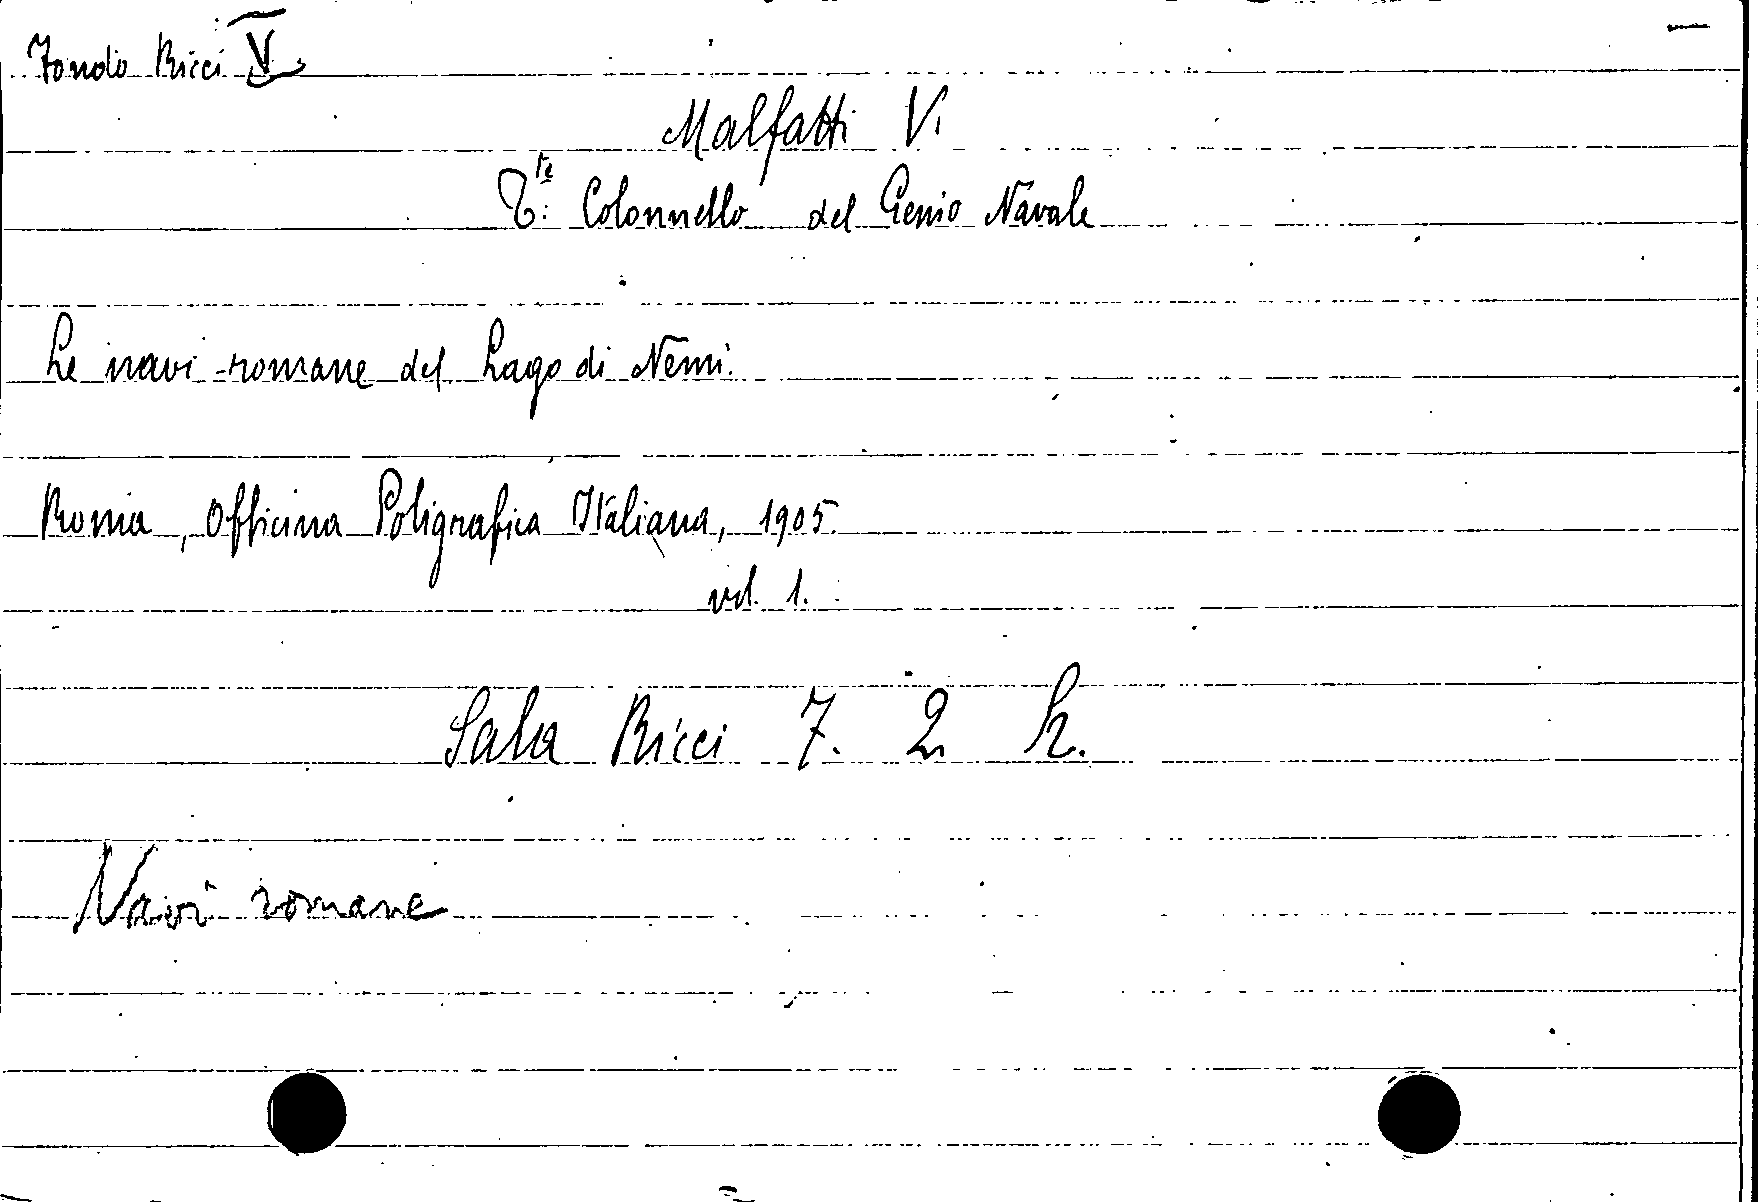 Fondo Ricci V
Malfatti V.
T.te Colonnello del Genio Navale
Le navi romane del Lago di Nemi.
Roma, Officina Poligrafica Italiana, 1905.
vol. 1.
Sala Ricci 7. 2 h.
Navi romane